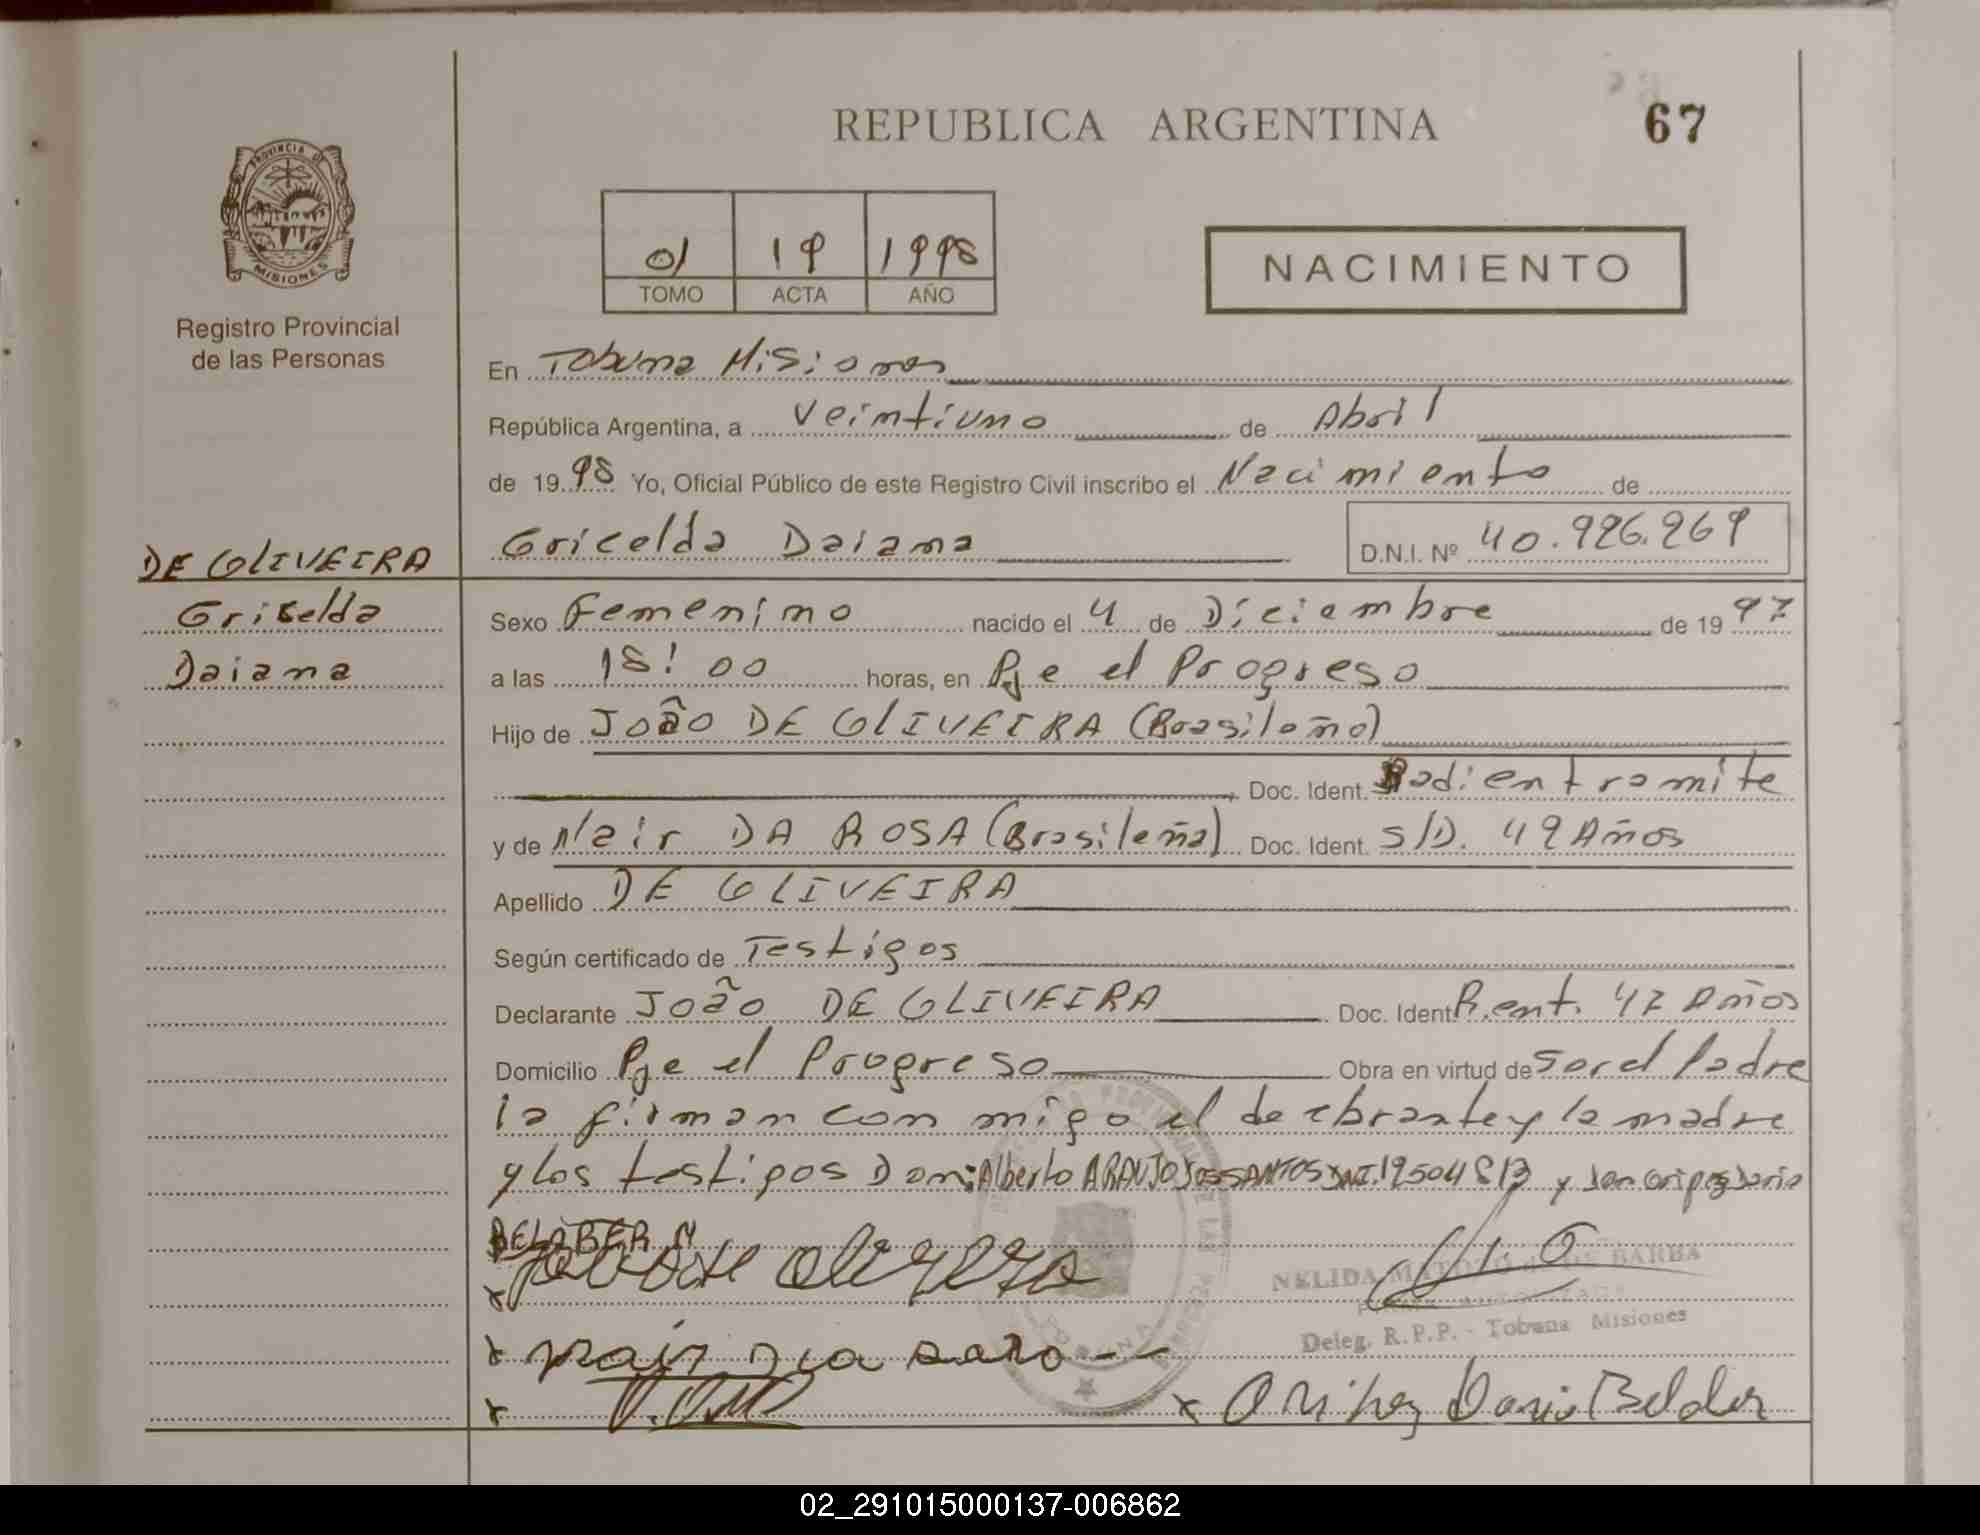 REPUBLICA ARGENTINA
67
PROVINCIA DE
MISIONES
Registro Provincial
de las Personas
01 19 1998
TOMO ACTA AÑO
NACIMIENTO
En Tobuna Misiones
República Argentina, a Veintiuno de Abril
de 1998 Yo, Oficial Público de este Registro Civil inscribo el Nacimiento de
Gricelda Daiana D.N.I. Nº 40.926.269
DE OLIVEIRA
Griselda
Daiana
Sexo Femenino nacido el 4 de Diciembre de 1997
a las 18:00 horas, en Pje el Progreso
Hijo de João DE OLIVEIRA (Brasileño)
Doc. Ident. Radi en tramite
y de Nair DA ROSA (Brasileña) Doc. Ident. S/D. 49 Años
Apellido DE OLIVEIRA
Según certificado de Testigos
Declarante João DE OLIVEIRA Doc. Ident. R.ent. 47 Años
Domicilio Pje el Progreso Obra en virtud de ser el Padre
la firman con migo el declarante y la madre
y los testigos Don: Alberto ARAUJO DOS SANTOS DNI. 19504813 y don
BELABER
NELIDA DE BARBA
Deleg. R.P.P. - Tobuna Misiones
TOBUNA
02_291015000137-006862